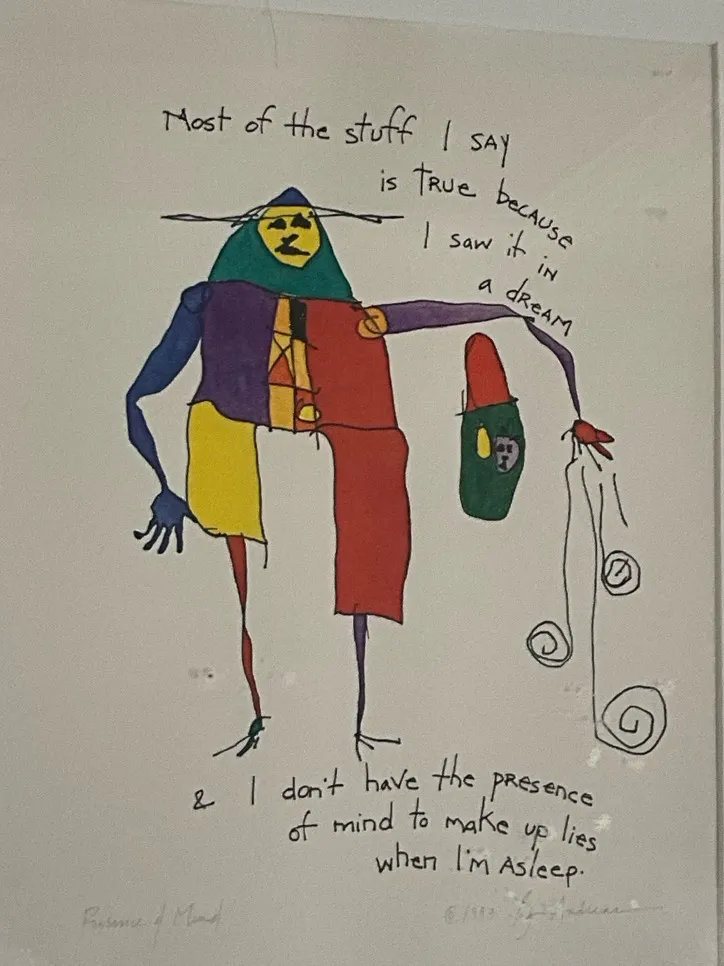 Most of the stuff I SAY
is TRUE because
I saw it in
a dream
& I don't have the presence
of mind to make up lies
when I'm Asleep.
Presence of Mind